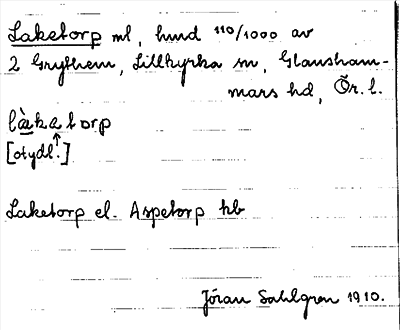 Laketorp ml, hmd 110/1000 av
2 Grythem, Lillkyrka sn, Glansham-
mars hd, Ör. l.
là̱ka̱torp
[otydl.]
Laketorp el. Aspetorp kb
Jöran Sahlgren 1910.